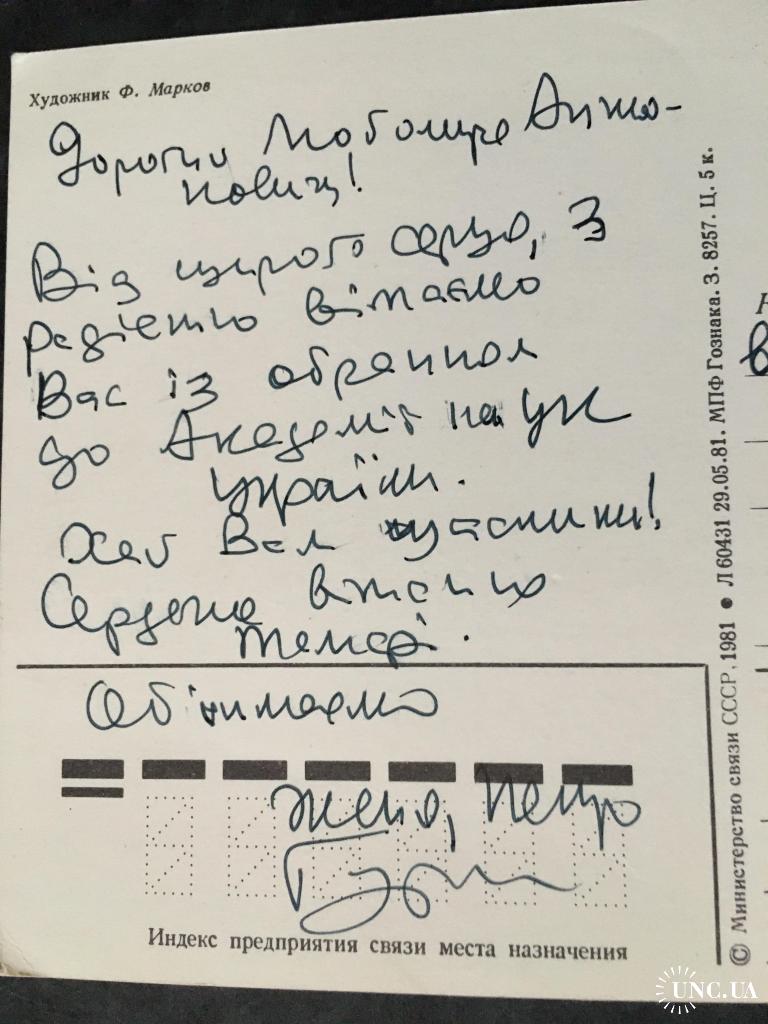 Художник Ф. Марков
Дорогий Любомире Анто-
нович!
Від щирого серця, з
радістю вітаємо
Вас із обранням
до Академії наук
України.
Хай Вам щастить!
Сердечне вітання
Обіймаємо
Женя, Петро
Индекс предприятия связи места назначения
© Министерство связи СССР, 1981 ● Л 60431 29.05.81. МПФ Гознака. З. 8257. Ц. 5 к.
UNC.UA